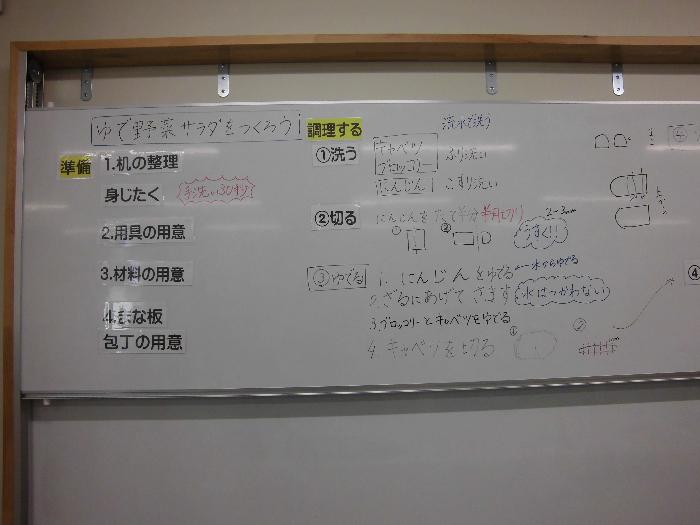 ゆで野菜サラダをつくろう!
準備
1.机の整理
身じたく
手洗い30秒
2.用具の用意
3.材料の用意
4.まな板
包丁の用意
調理する
流水で洗う
①洗う
キャベツ
ブロッコリー
ふり洗い
にんじん
こすり洗い
②切る
にんじんをたて半分 半月切り
① ②
うすく!!
2~3mm
③ゆでる
1. にんじんをゆでる ←水からゆでる
2.ざるにあげてさます 水はつかわない
3.ブロッコリーとキャベツをゆでる
4.キャベツを切る
① ②
④
④